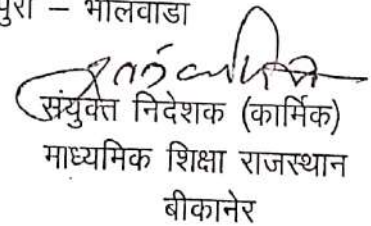 पुरा – भीलवाडा
संयुक्त निदेशक (कार्मिक)
माध्यमिक शिक्षा राजस्थान
बीकानेर